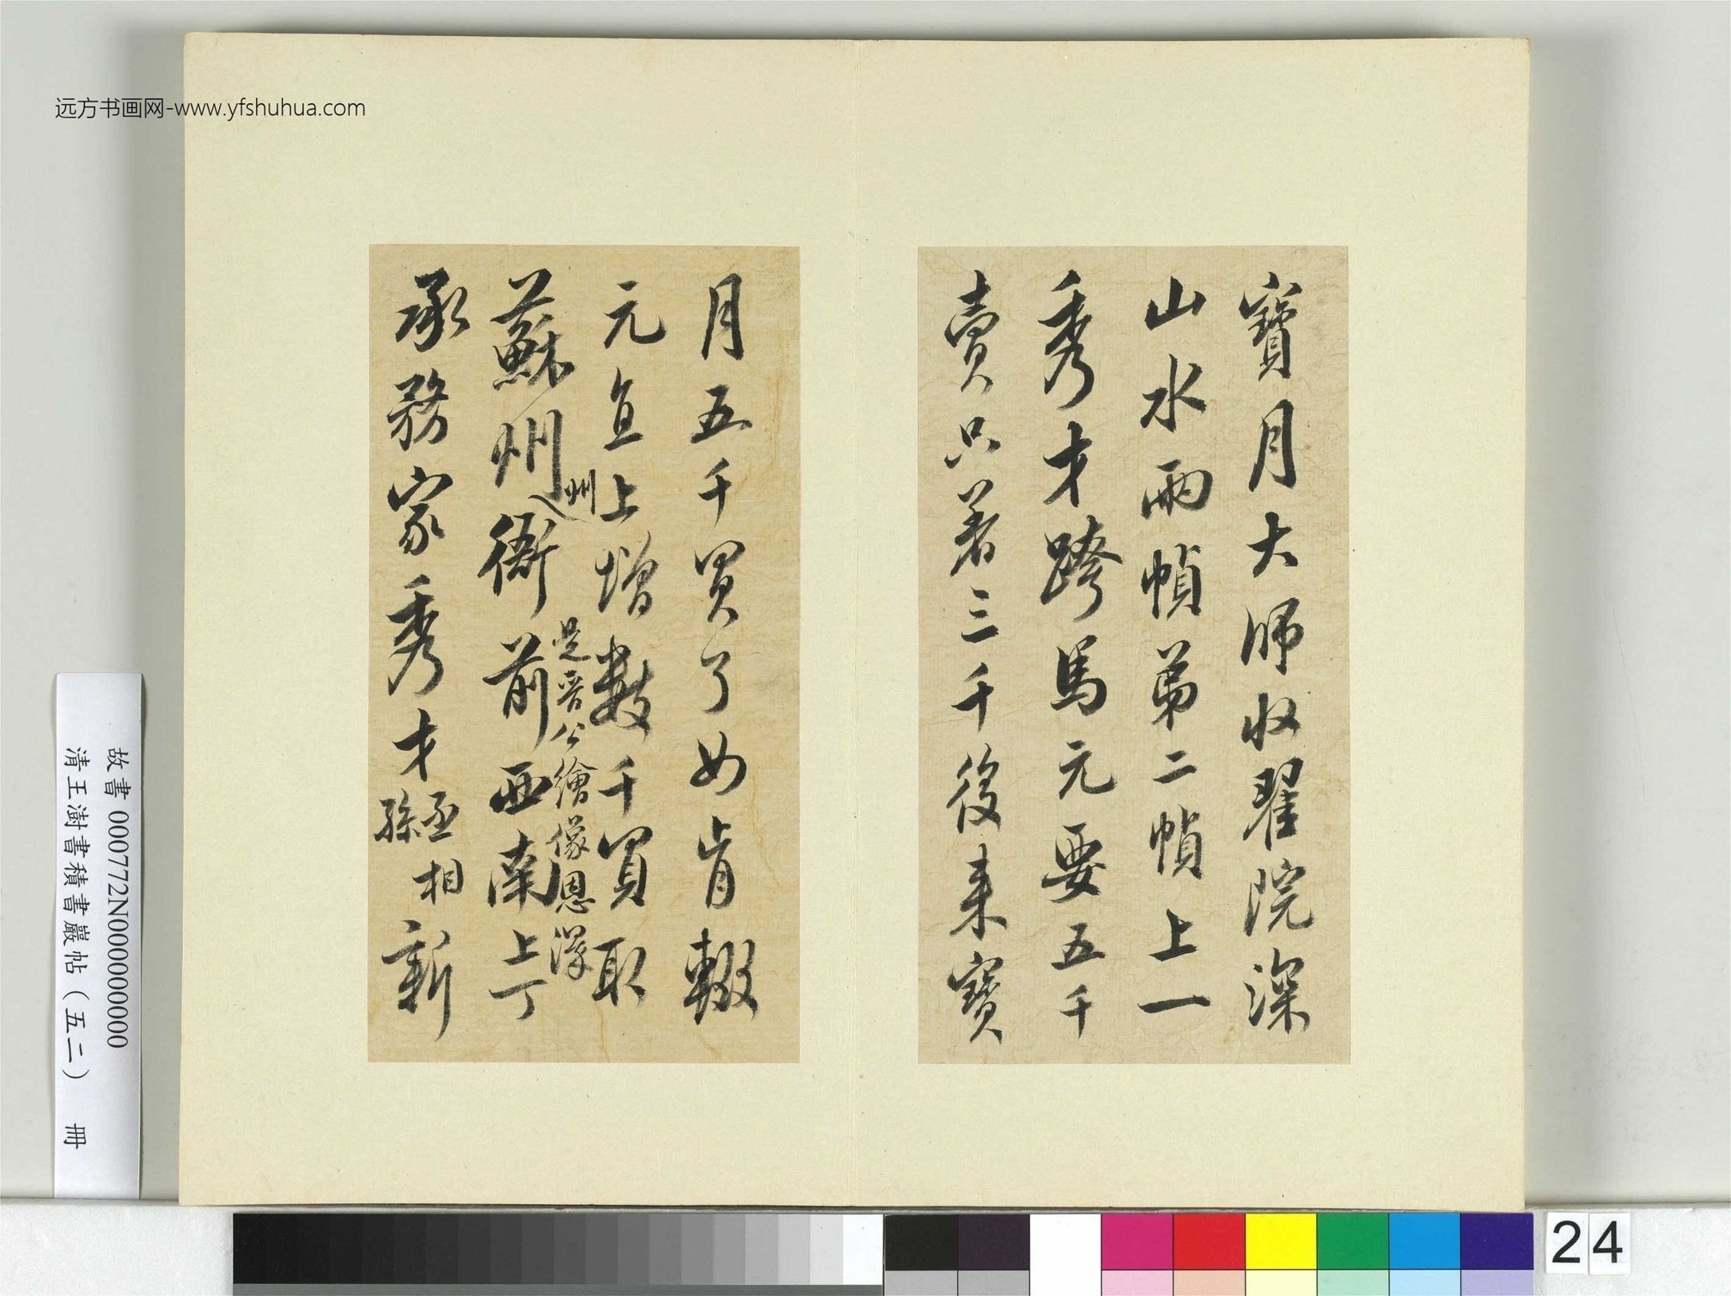 远方书画网-www.yfshuhua.com
寶月大師收翟院深
山水兩幀第二幀上一
秀才跨馬元要五千
賣只著三千後来寶
月五千買了如肯輟
元直上增數千買取
是晉公繪像恩澤
蘇州州衙前西南上丁
承務家秀才丞相孫新
故書000772N000000000
清王澍書積書巖帖(五二) 冊
24